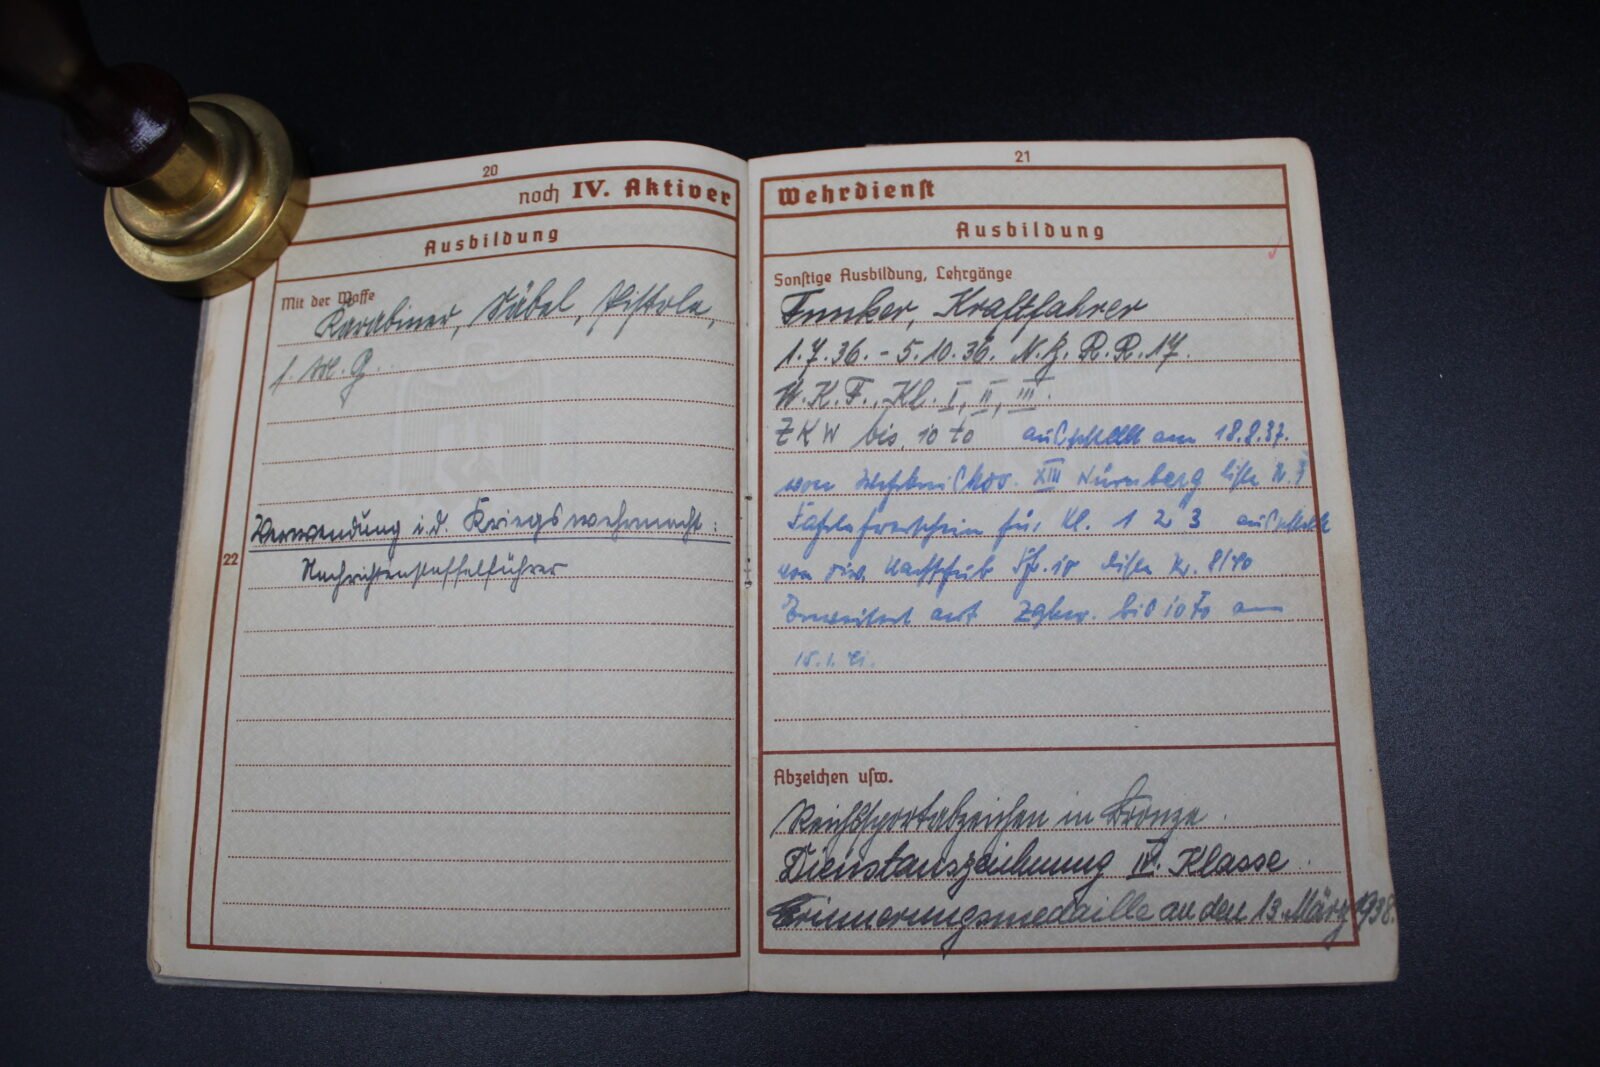 20
noch IV. Aktiver
Ausbildung
Mit der Waffe
Karabiner, Säbel, Pistole,
l. M. G.
22
Verwendung i. d. Kriegswehrmacht:
Nachrichtenstaffelführer
21
Wehrdienst
Ausbildung
Sonstige Ausbildung, Lehrgänge
Funker, Kraftfahrer
1.7.36. - 5.10.36. N. Z. R. R. 17.
W. K. F. Kl. I, II, III.
ZKW bis 10 to ausgestellt am 18.8.37.
von XIII Nürnberg Liste N.
für Kl. 1 2 3 ausgestellt
von Div. Nachschub Liste Nr. 8/40
Erweitert auf Zgkw. bis 10 To am
15.1.41.
Abzeichen usw.
Reichssportabzeichen in Bronze.
Dienstauszeichnung IV. Klasse.
Erinnerungsmedaille an den 13. März 1938.